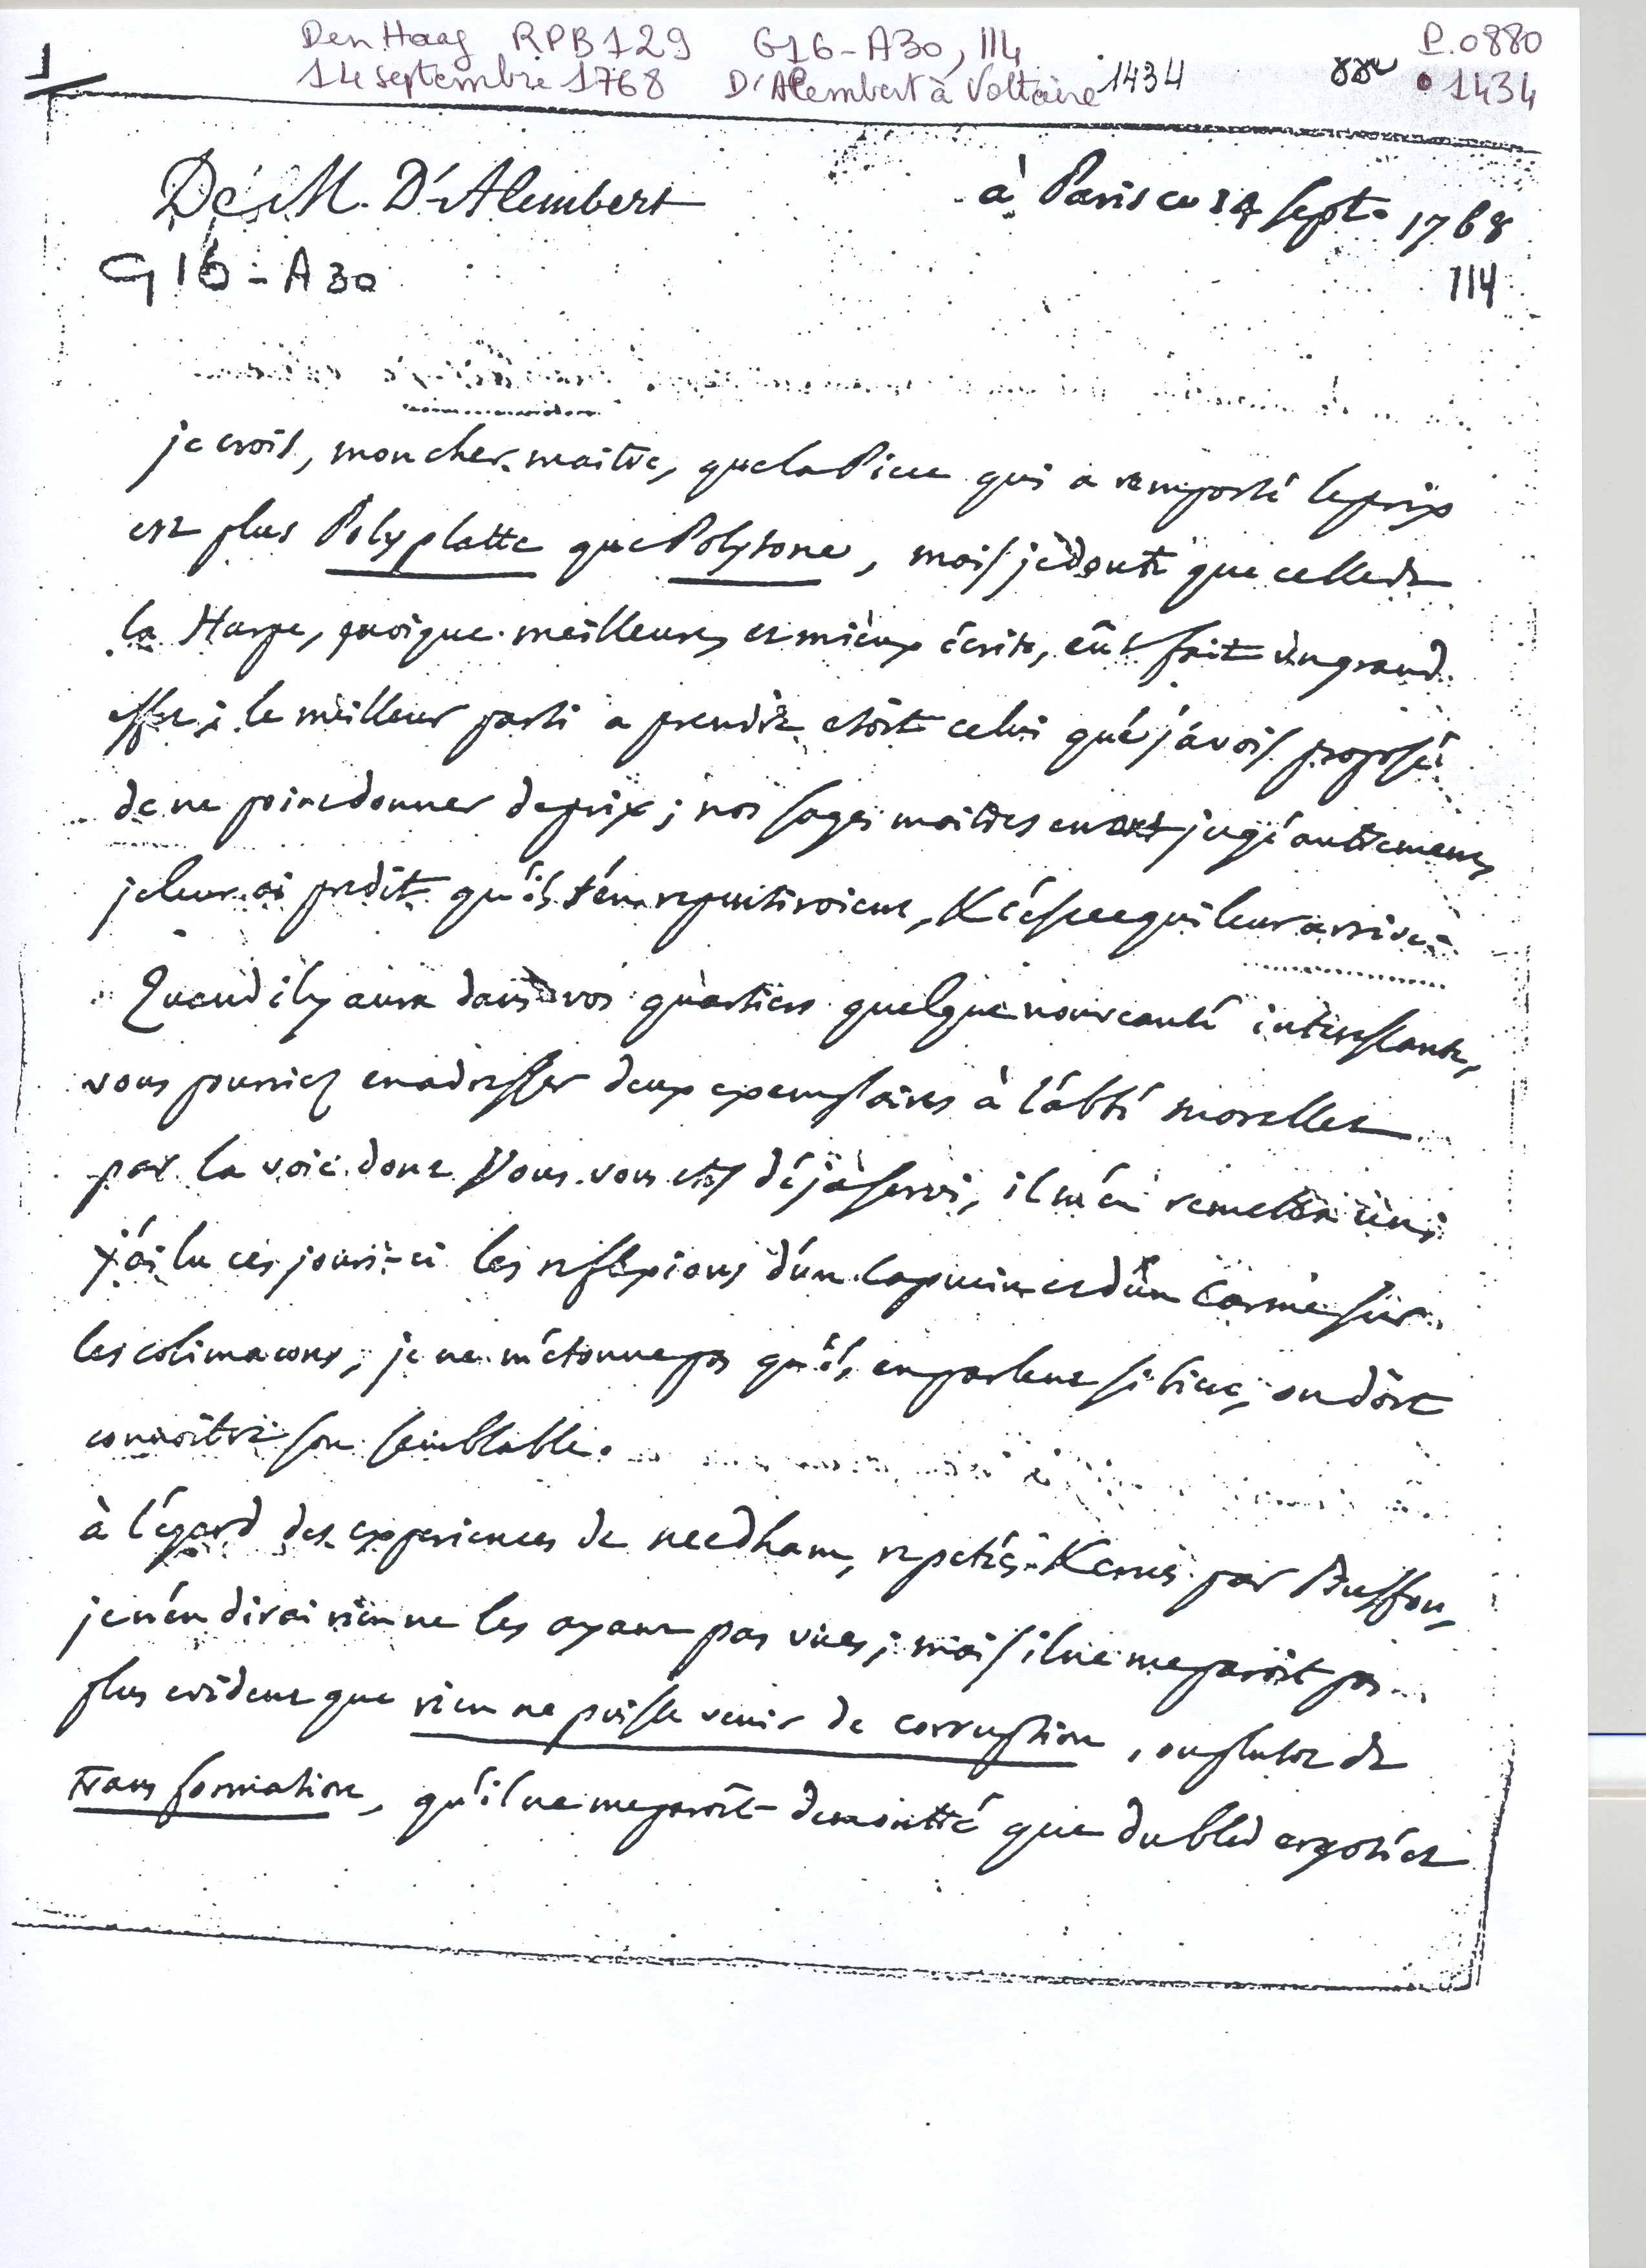 1 Den Haag RPB 129 G16-A30, 114 P.0880
14 septembre 1768 D'Alembert à Voltaire 1434 • 1434
De M. D'Alembert à Paris ce 14 sept. 1768
G16-A30 114
je crois, mon cher maitre, que la Piece qui a remporté le prix
est plus Polyplatte que Polysone, mais je doute que celle de
la Harpe, quoique meilleure, et mieux écrite, eût fait un grand
effet; le meilleur parti a prendre etoit celui que j'avois proposé
de ne point donner de prix; nos sages maitres en ont jugé autrement,
je leur ai predit qu'ils s'en repentiroient, & c'est ce qui leur arrive.
Quand il y aura dans vos quartiers quelque nouveauté interessante,
vous pourriez en adresser deux exemplaires à l'abbé morellet
par la voie dont Vous vous etes déjà servi, il m'en remettra un;
j'ai lu ces jours-ci les reflexions d'un capucin et d'un carme sur
les colimacons; je ne m'étonne pas qu'ils en parlent si bien, on doit
connoitre son semblable.
à l'égard des experiences de needham, repetées & crues par Buffon,
je n'en dirai rien ne les ayant pas vues; mais il ne me paroit pas
plus evident que rien ne puisse venir de corruption, ou plutot de
transformation, qu'il ne me paroit demontré que du bled ergoté et